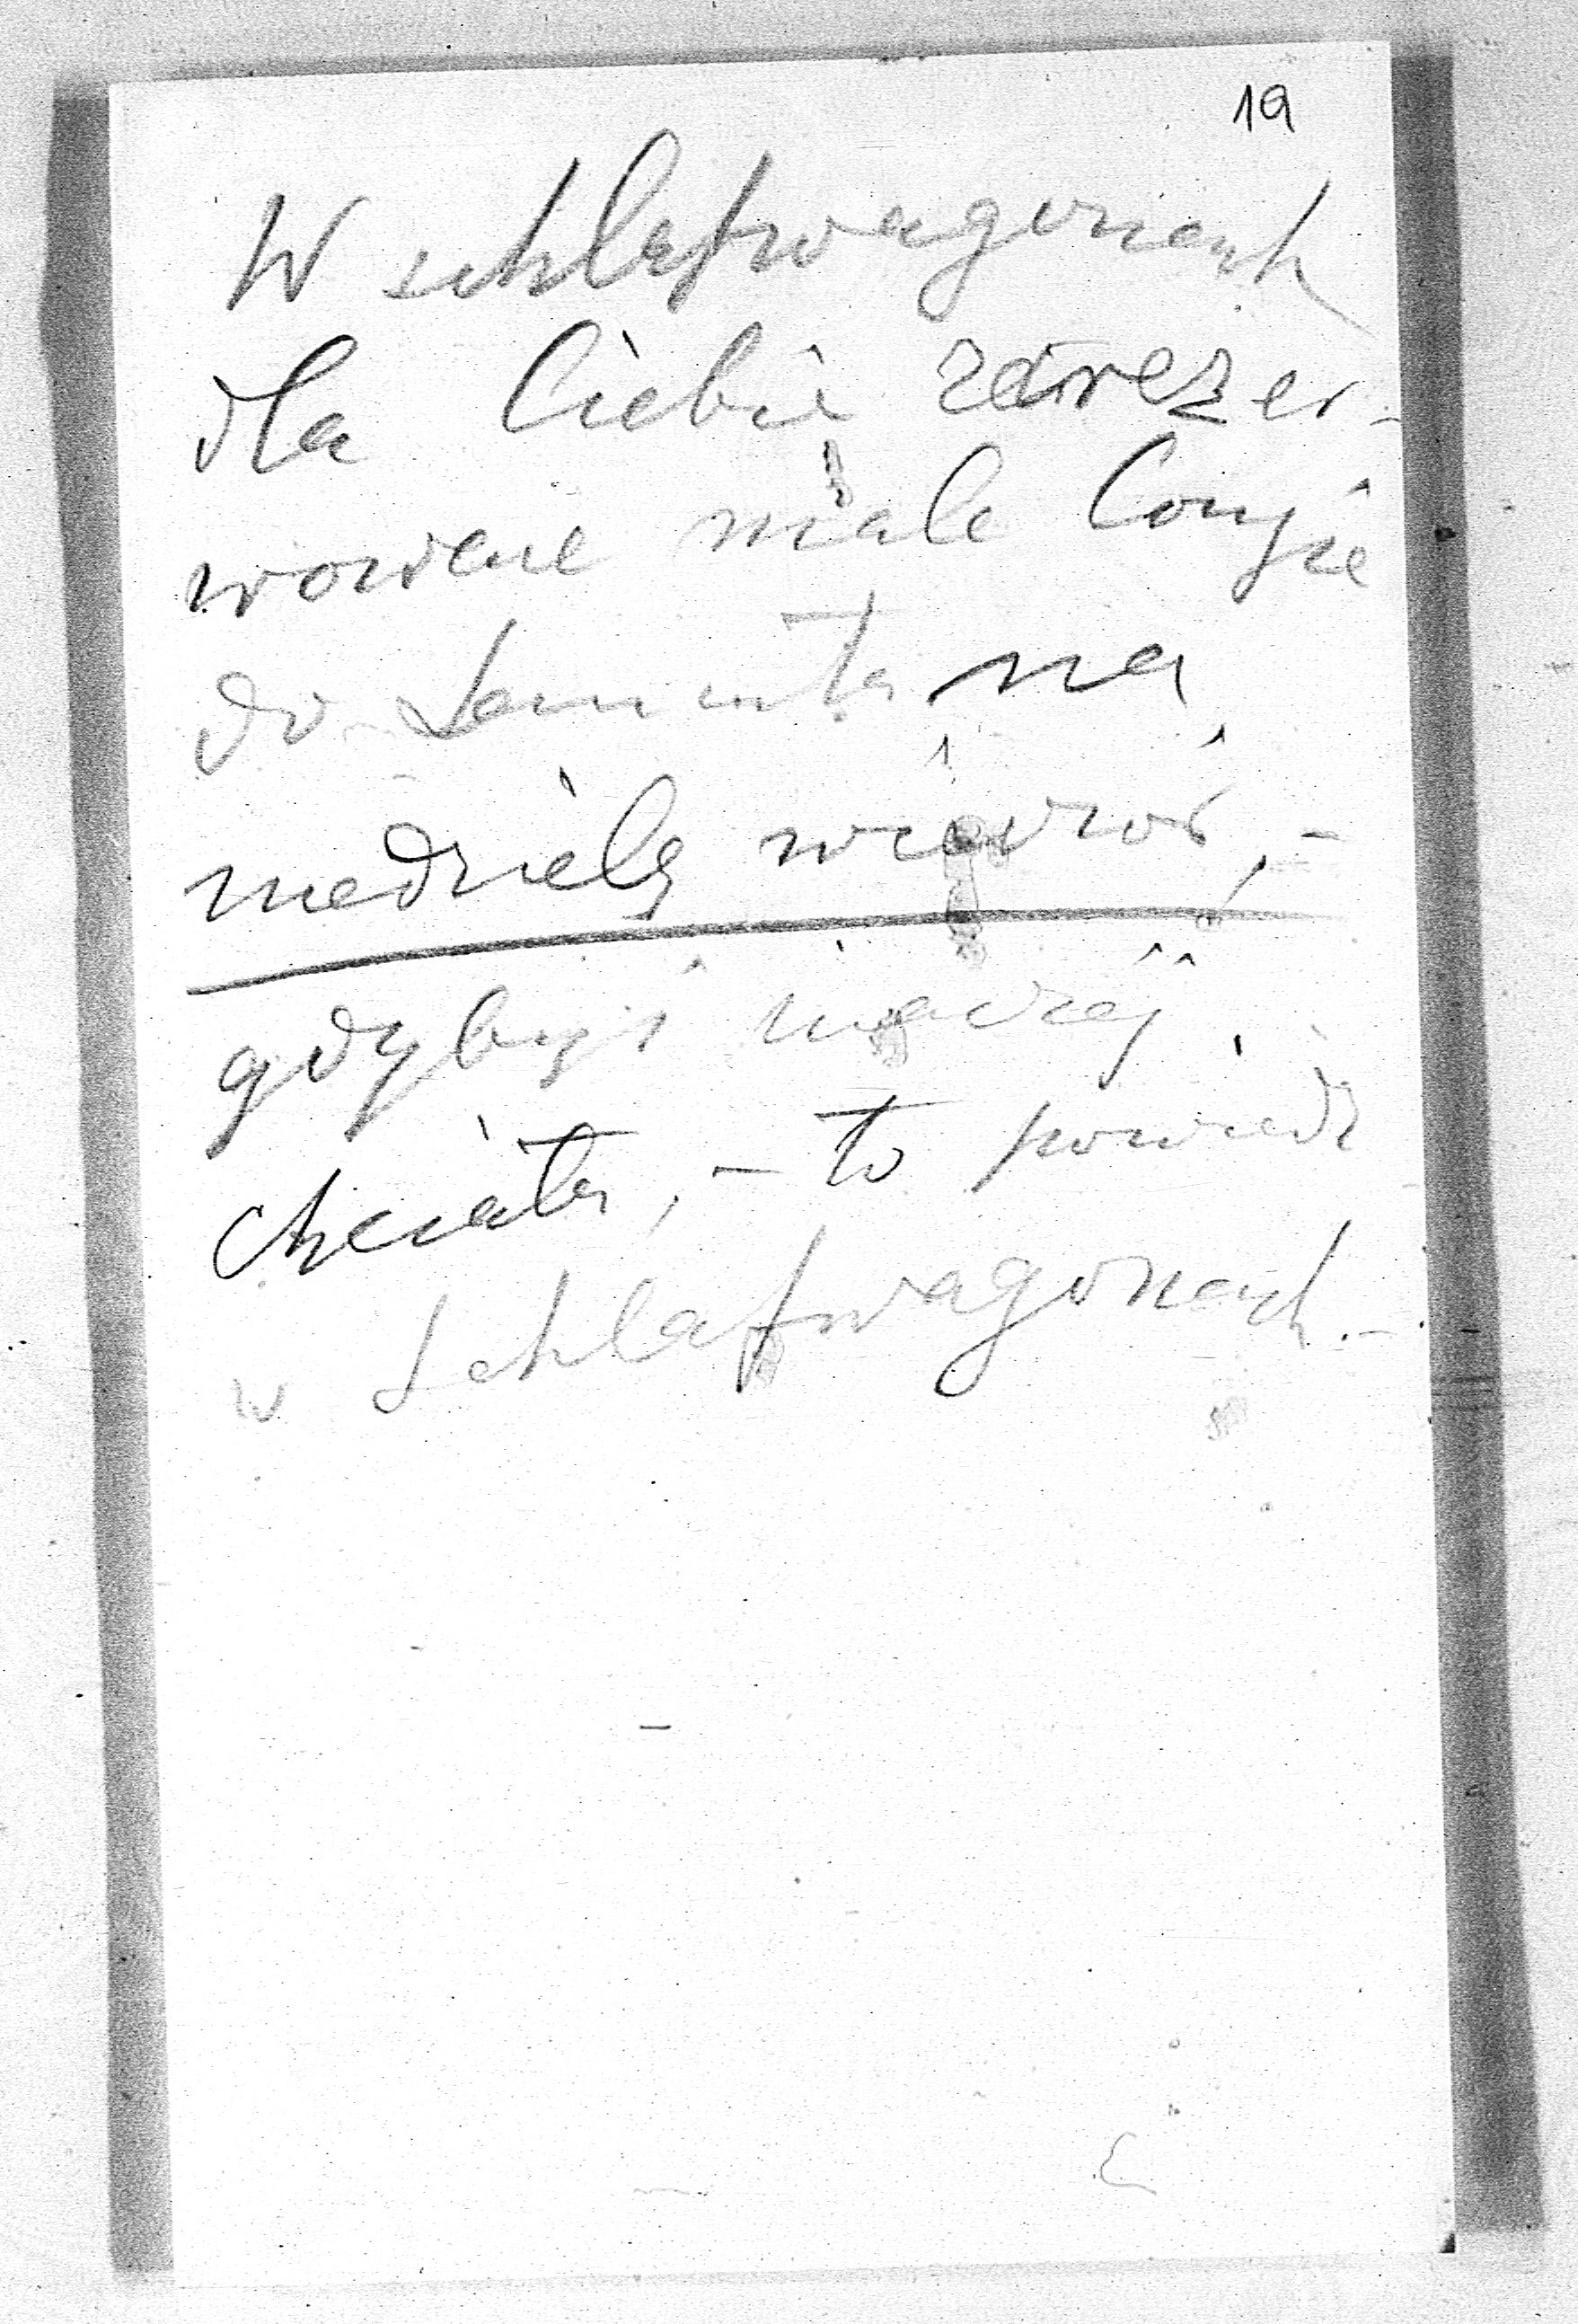 19
W schlafwagonach
dla Ciebie zarezer-
wowane małe Coupée
do Łańcuta na
niedzielę wieczór, -
gdybyś inaczej
chciała, - to powiedz
w Schlafwagonach. -